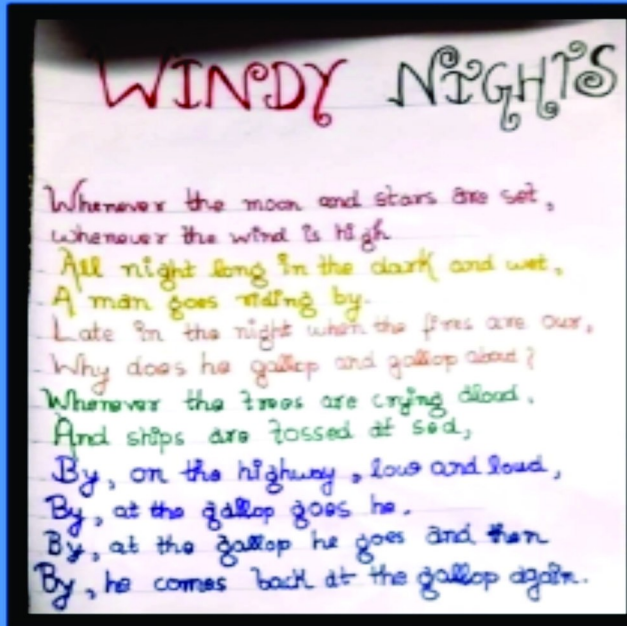 WINDY NIGHTS
Whenever the moon and stars are set,
Whenever the wind is high
All night long in the dark and wet,
A man goes riding by.
Late in the night when the fires are our,
Why does he gallop and gallop about?
Whenever the trees are crying aloud,
And ships are tossed at sea,
By, on the highway, low and loud,
By, at the gallop goes he.
By, at the gallop he goes and then
By, he comes back at the gallop again.